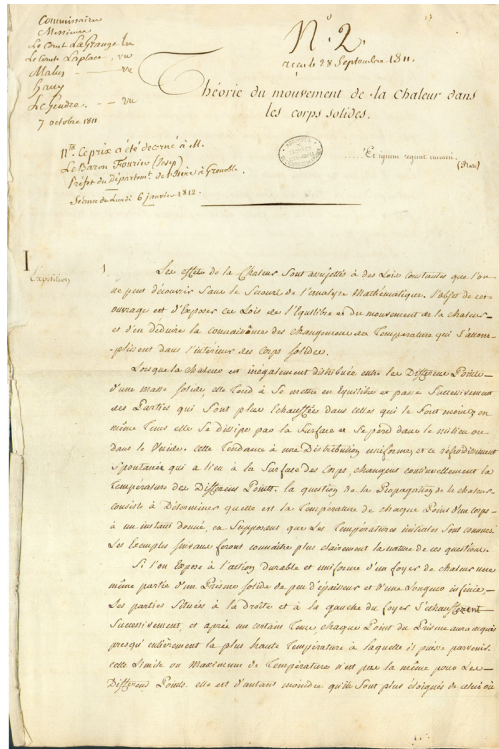 Commissaires
Messieurs
Le Comte LaGrange lu
Le Comte Laplace, vu
Malus — vu
Hauy
LeGendre. — vu
7 octobre 1811
N°. 2.
reçu le 28 Septembre 1811.
Théorie du mouvement de la Chaleur dans
les corps solides.
Nta. Ce prix a été décerné à M.
Le Baron Fourier (Josep)
Préfet du Départemt. de l'Isère à Grenoble.
Séance du Lundi 6 janvier 1812.
....Et ignem regunt numeri.
(Plat.)
I
Exposition
1
Les effets de la Chaleur sont assujettis à des Lois constantes que l'on
ne peut découvrir sans le secours de l'analyse Mathématique. l'objet de cet
ouvrage est d'Exposer ces Lois de l'Equilibre et du mouvement de la chaleur
et d'en déduire la connaissance des changements de Température qui s'accom-
-plissent dans l'intérieur des Corps solides.
Lorsque la chaleur est inégalement distribuée entre les Différents Points
d'une masse solide, elle tend à se mettre en Equilibre et passe successivement
des Parties qui sont plus échauffées dans celles qui le sont moins; en
même tems elle se dissipe par la surface et se perd dans le milieu ou
dans le Vuide. cette Tendance à une Distribution uniforme, et ce refroidissement
spontanée qui a lieu à la surface des Corps, changent continuellement la
Température des Différens Points. la question de la Propagation de la chaleur
consiste à Déterminer quelle est la Température de chaque Point d'un corps
à un instant donné, en supposant que les Températures initiales sont connues.
Les Exemples suivans feront connaître plus clairement la nature de ces questions.
Si l'on Expose à l'action durable et uniforme d'un foyer de chaleur une
même partie d'un Prisme solide de peu d'épaisseur et d'une longueur infinie
Les parties situées à la droite et à la gauche du foyer s'échauffent
successivement, et après un certain tems chaque Point du Prisme aura acquis
presqu'entièrement la plus haute Température à laquelle il puisse parvenir.
cette Limite ou Maximum de Température n'est pas la même pour les
Différens Points. elle est d'autant moindre qu'ils sont plus éloignés de celui où